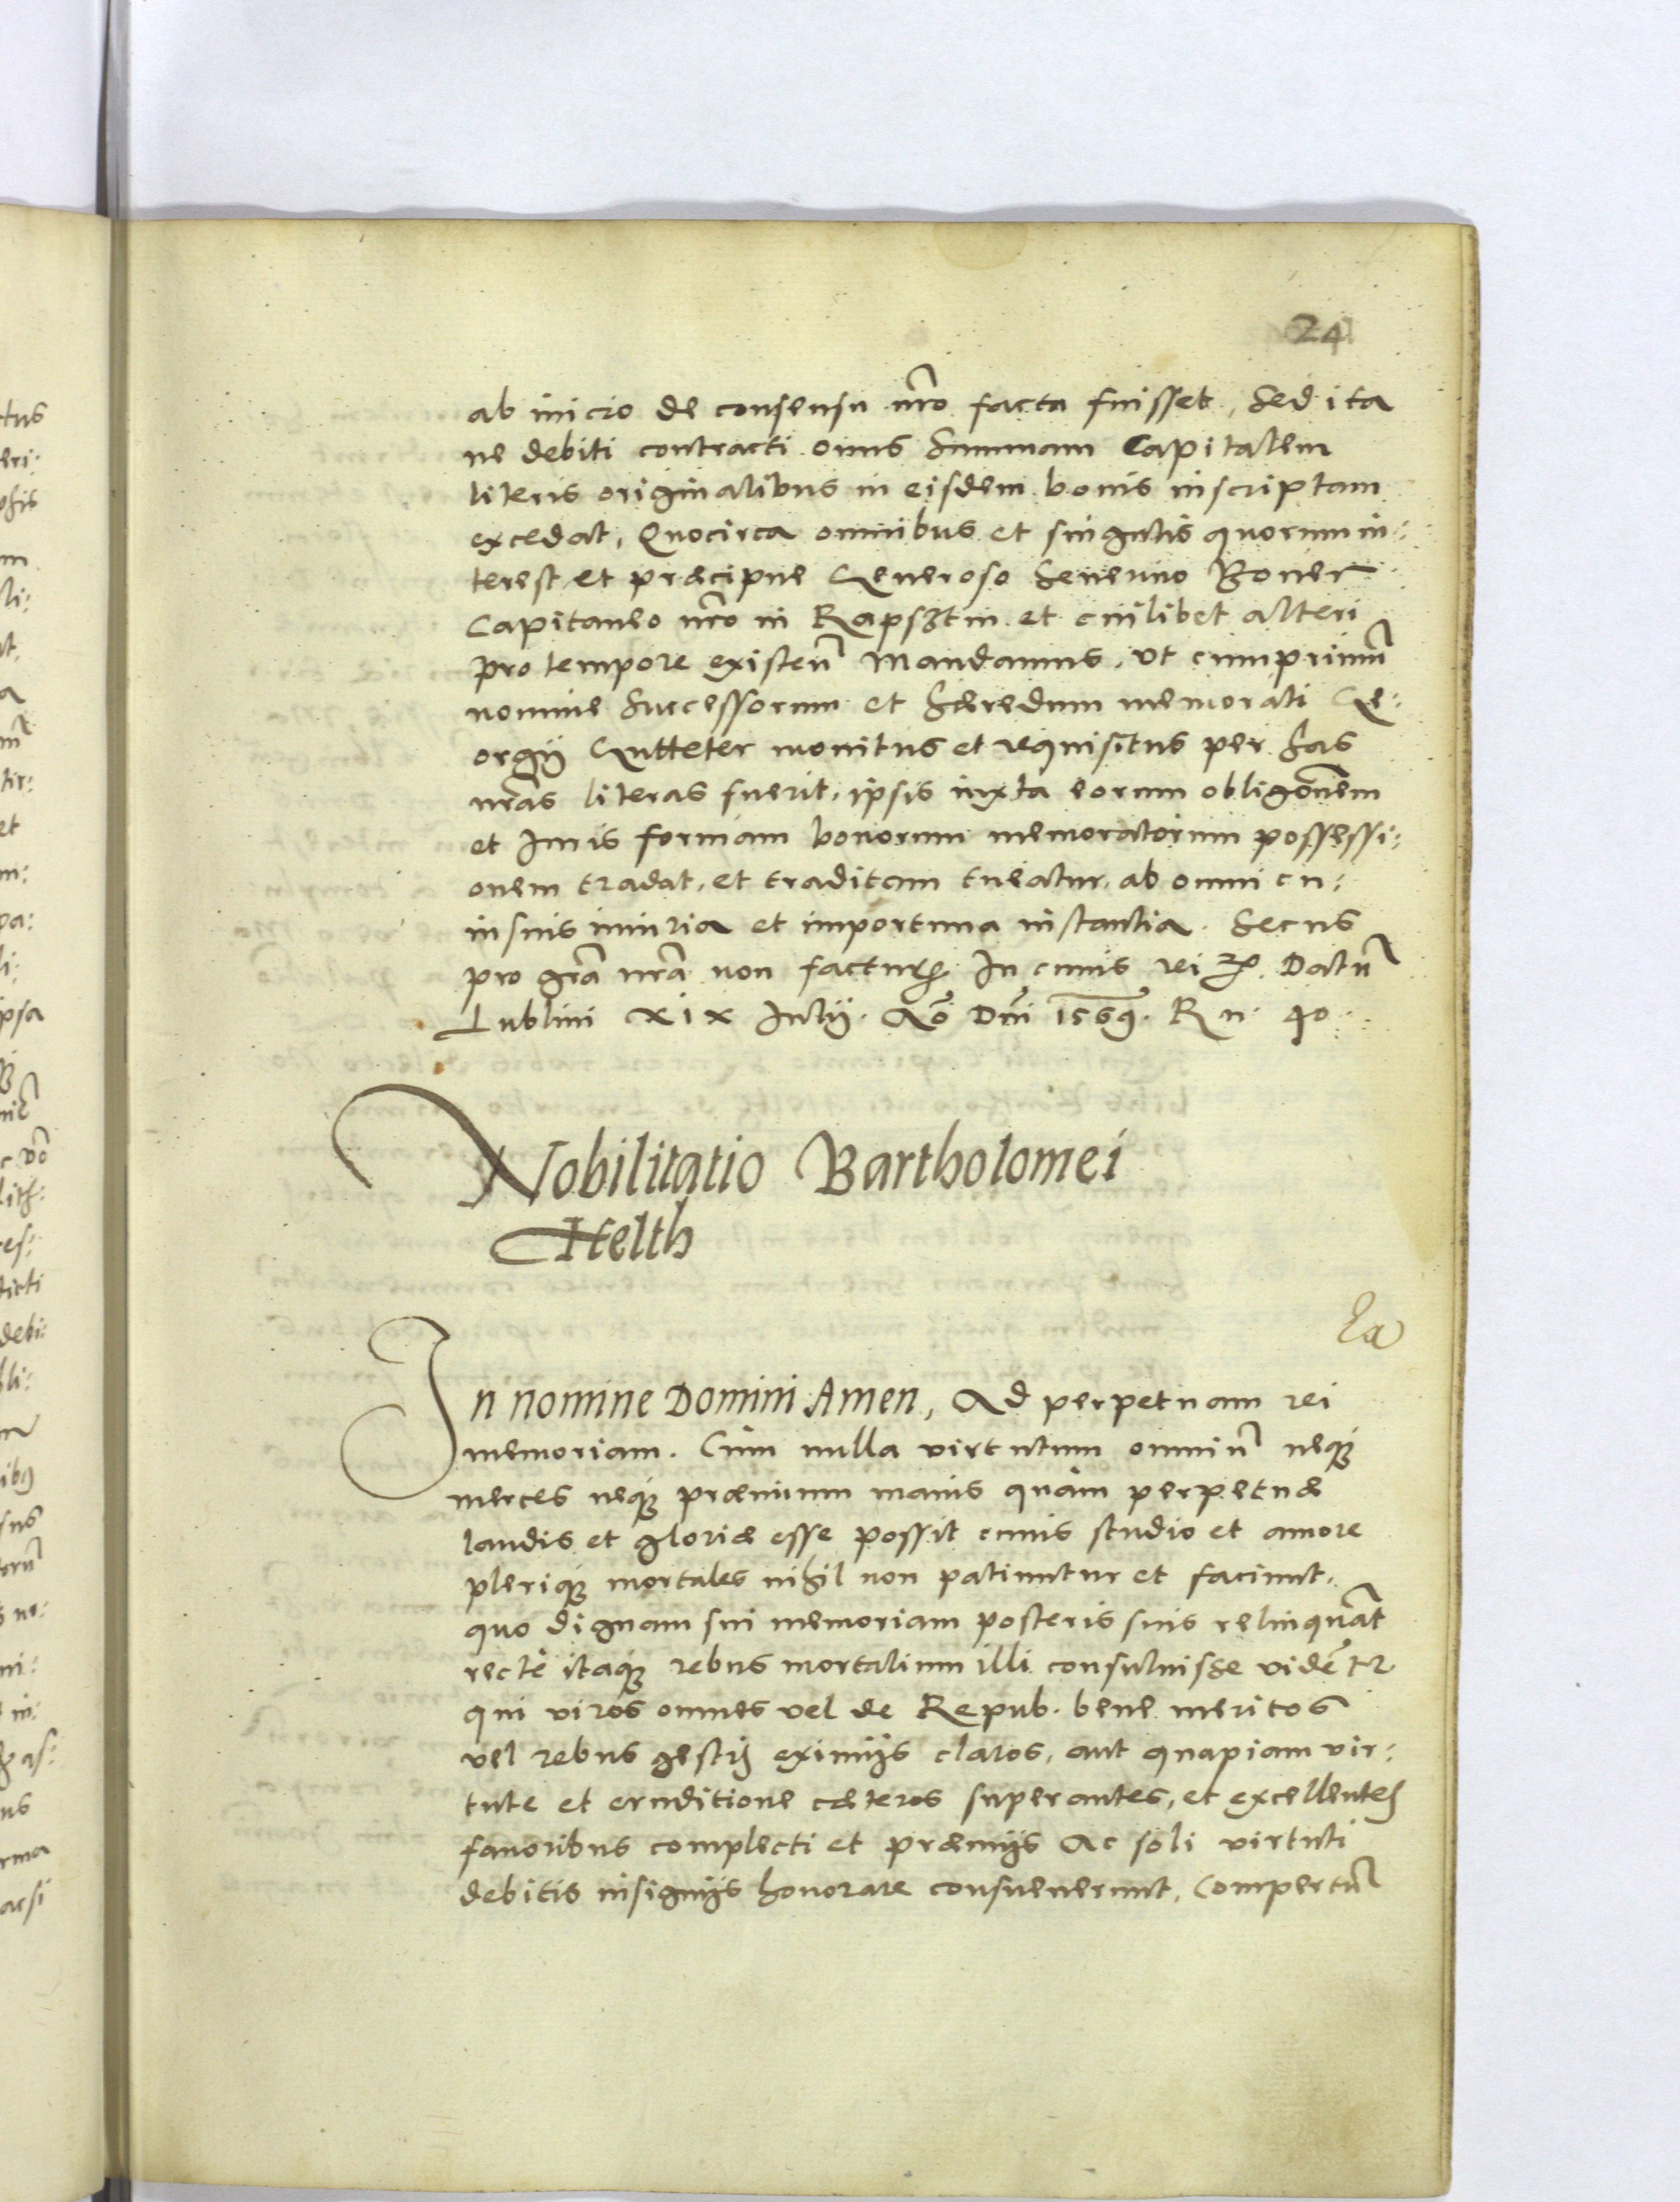 24
ab inicio de consensu nr̃o facta fuisset, sed ita
ne debiti contracti onus summam Capitalem
literis originalibus in eisdem bonis inscriptam
excedat, Quocirca omnibus et singulis quorum in:
terest et præcipue Generoso Seuerino Boner
Capitaneo nr̃o in Rapsztin et cuilibet alteri
pro tempore existeñ Mandamus, ut cumprimũ
nomine Successorum et hæredum memorati Ge:
orgij Gutteter monitus et requisitus per has
nr̃as literas fuerit, ipsis iuxta eorum obligõnem
et Juris formam bonorum memoratorum possessi:
onem tradat, et traditam tueatur, ab omni cu:
iusuis iniuria et importuna instantia. Secus
pro grã nrã non factur, In cuius rei Datũ
Lublini XIX Julij. Aõ Dñi 1569. R n. 40
Nobilitatio Bartholomei
Helth
In nomine Domini Amen, Ad perpetuam rei
memoriam. Cùm nulla virtutum omniũ neq;
merces neq; præmium maius quàm perpetuæ
laudis et gloriæ esse possit cuius studio et amore
pleriq; mortales nihil non patiuntur et faciunt,
quo dignam sui memoriam posteris suis relinquãt
rectè itaq; rebus mortalium illi consuluisse vidẽtr
qui viros omnes vel de Repub. bene meritos
vel rebus gestis eximijs claros, aut quapiam vir:
tute et eruditione cæteros superantes, et excellentes
fauoribus complecti et præmijs Ac soli virtuti
debitis insignijs honorare consueuerunt, Compertũ